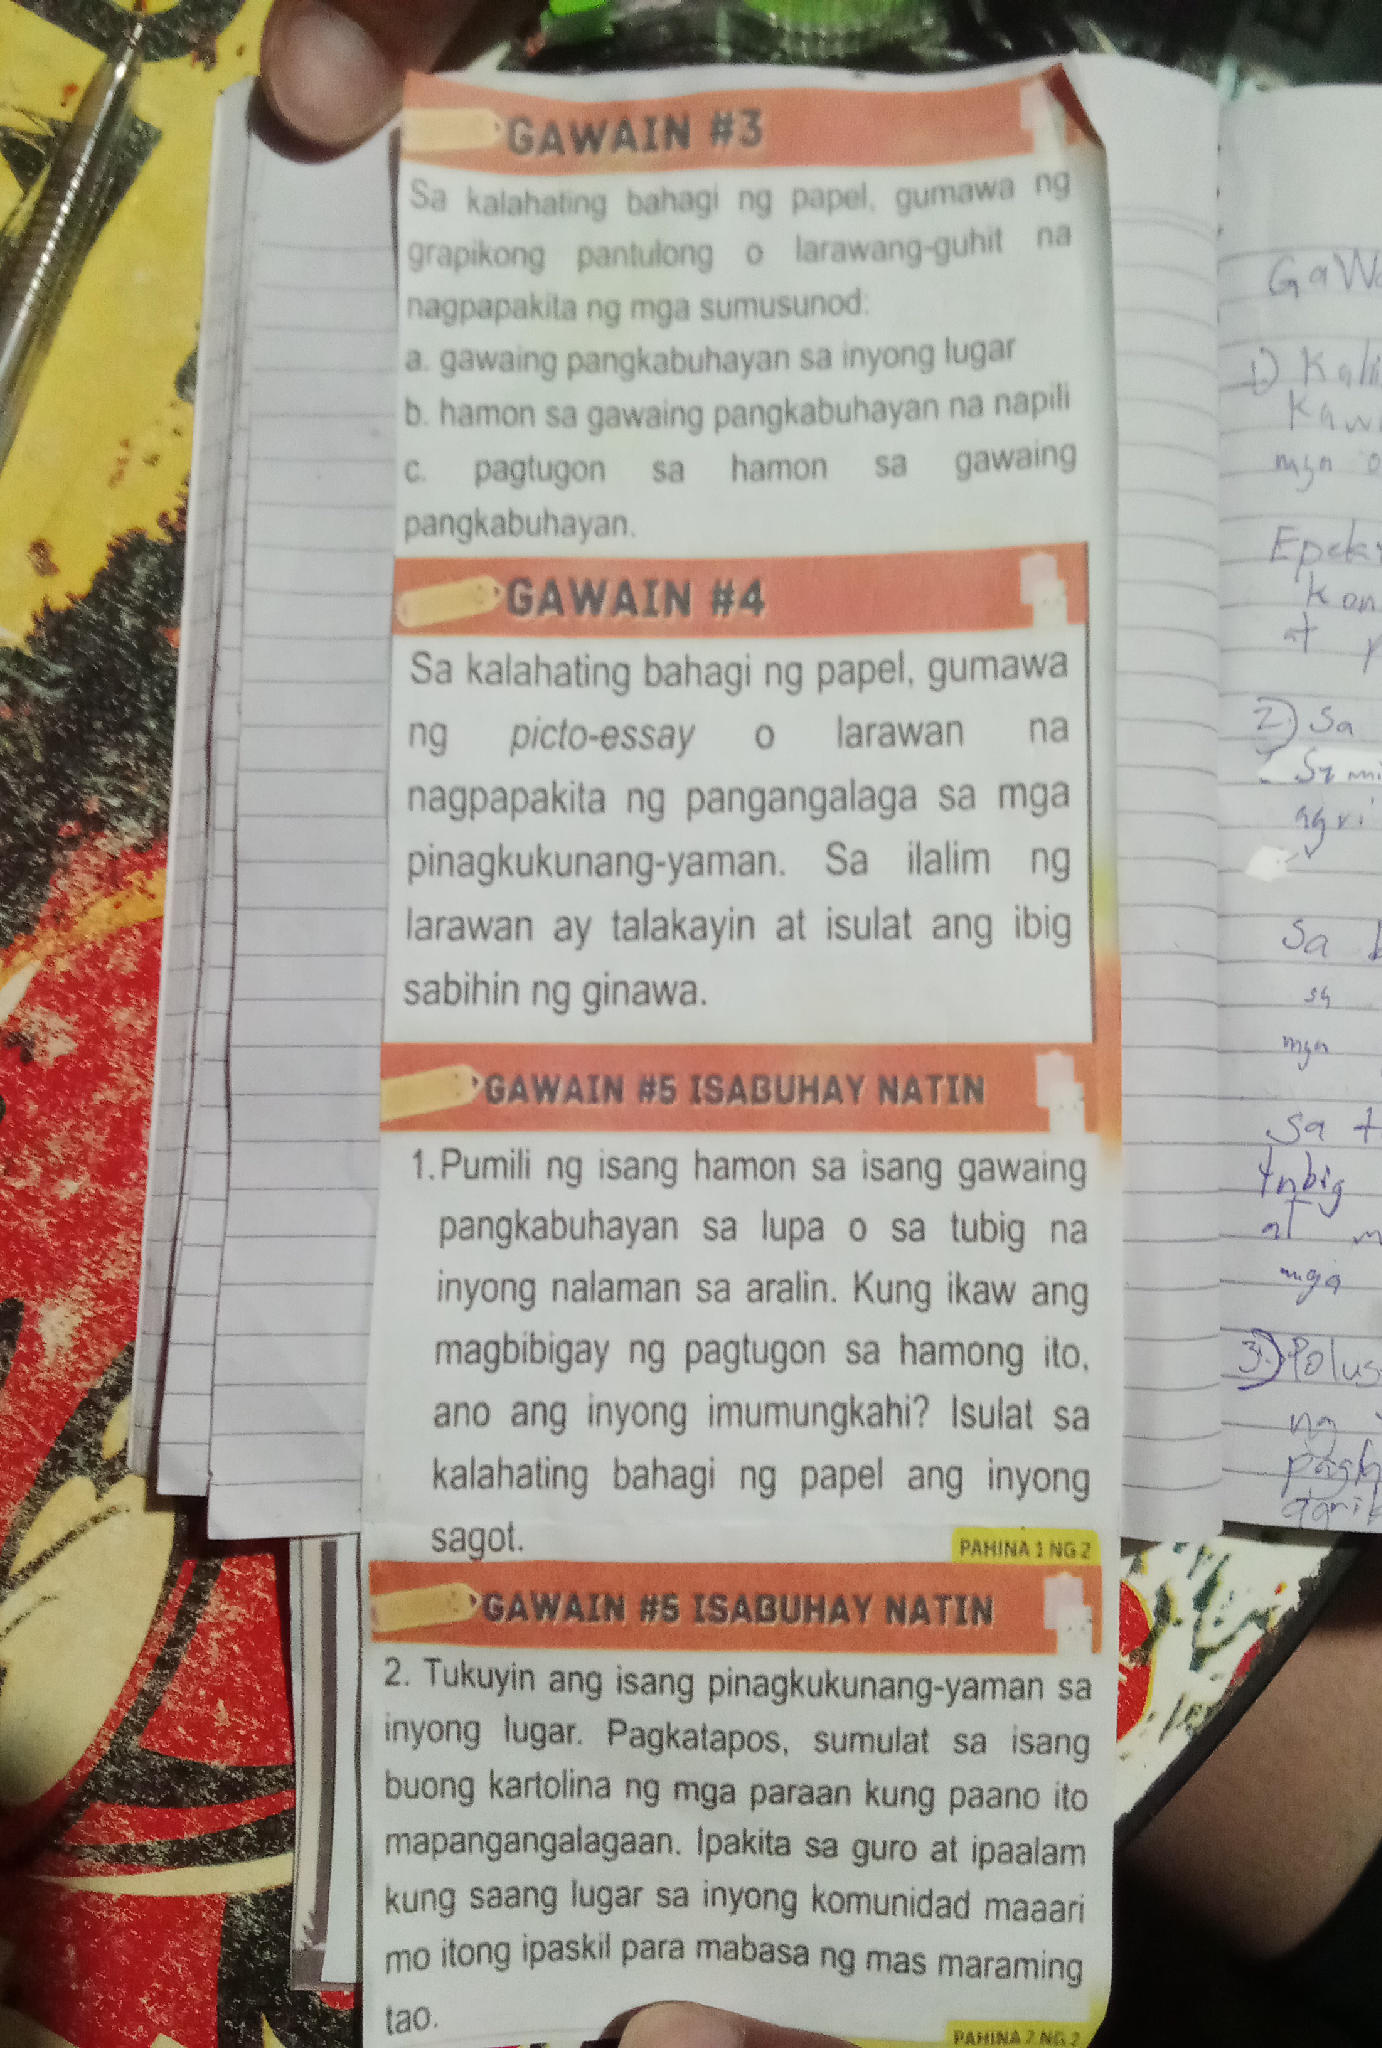 GAWAIN #3
Sa kalahating bahagi ng papel, gumawa ng
grapikong pantulong o larawang-guhit na
nagpapakita ng mga sumusunod:
a. gawaing pangkabuhayan sa inyong lugar
b. hamon sa gawaing pangkabuhayan na napili
c. pagtugon sa hamon sa gawaing
pangkabuhayan.
GAWAIN #4
Sa kalahating bahagi ng papel, gumawa
ng picto-essay o larawan na
nagpapakita ng pangangalaga sa mga
pinagkukunang-yaman. Sa ilalim ng
larawan ay talakayin at isulat ang ibig
sabihin ng ginawa.
GAWAIN #5 ISABUHAY NATIN
1.Pumili ng isang hamon sa isang gawaing
pangkabuhayan sa lupa o sa tubig na
inyong nalaman sa aralin. Kung ikaw ang
magbibigay ng pagtugon sa hamong ito,
ano ang inyong imumungkahi? Isulat sa
kalahating bahagi ng papel ang inyong
sagot.
PAHINA 1 NG 2
GAWAIN #5 ISABUHAY NATIN
2. Tukuyin ang isang pinagkukunang-yaman sa
inyong lugar. Pagkatapos, sumulat sa isang
buong kartolina ng mga paraan kung paano ito
mapangangalagaan. Ipakita sa guro at ipaalam
kung saang lugar sa inyong komunidad maaari
mo itong ipaskil para mabasa ng mas maraming
tao.
PAHINA 2 NG 2
1)
at
2) Sa
Sa
sa
mga
Sa
tubig
at
mga
3)
ng